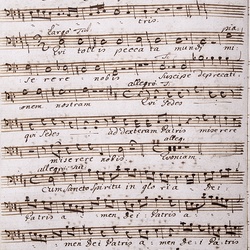 tris.
largo
Qui tollis peccata mundi mi
serere nobis Suscipe deprecati
allegro
onem nostram Qui Sedes
qui Sedes ad dexteram Patris miserere
alleg:
miserere nobis. Quoniam
Cum Sancto Spiritu in gloria Dei
Patris a men, Dei Patris a
men Dei Patris a men